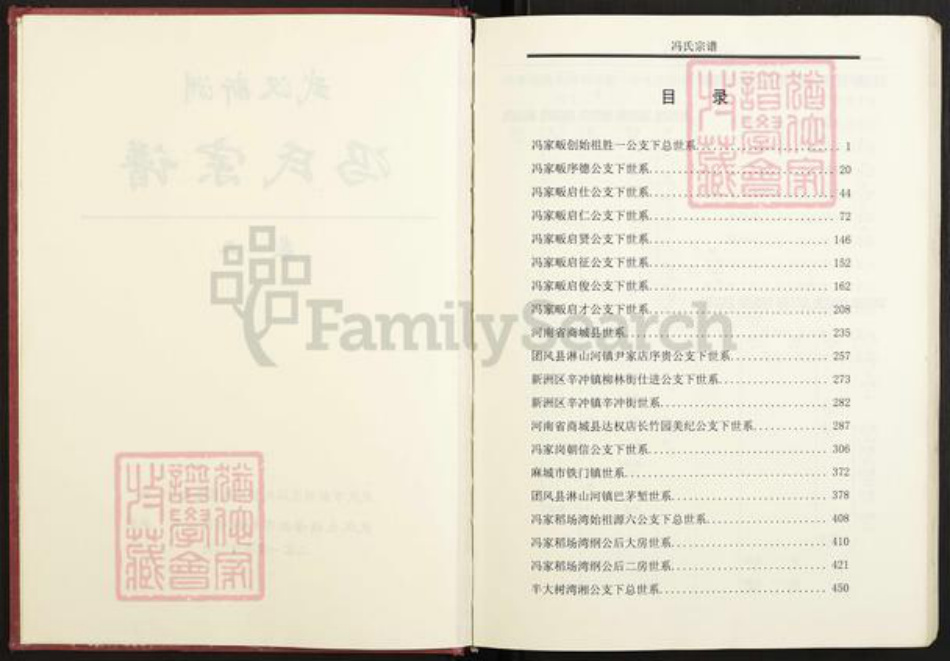 武汉新洲
冯氏宗谱
FamilySearch
冯氏宗谱
目 录
冯家畈创始祖胜一公支下总世系 1
冯家畈序德公支下世系 20
冯家畈启仕公支下世系 44
冯家畈启仁公支下世系 72
冯家畈启贤公支下世系 146
冯家畈启征公支下世系 152
冯家畈启俊公支下世系 162
冯家畈启才公支下世系 208
河南省商城县世系 235
团风县淋山河镇尹家店序贵公支下世系 257
新洲区辛冲镇柳林街仕进公支下世系 273
新洲区辛冲镇辛冲街世系 282
河南省商城县达权店长竹园美纪公支下世系 287
冯家岗朝信公支下世系 306
麻城市铁门镇世系 372
团风县淋山河镇巴茅堑世系 378
冯家稻场湾始祖源六公支下总世系 408
冯家稻场湾纲公后大房世系 410
冯家稻场湾纲公后二房世系 421
半大树湾湘公支下总世系 450